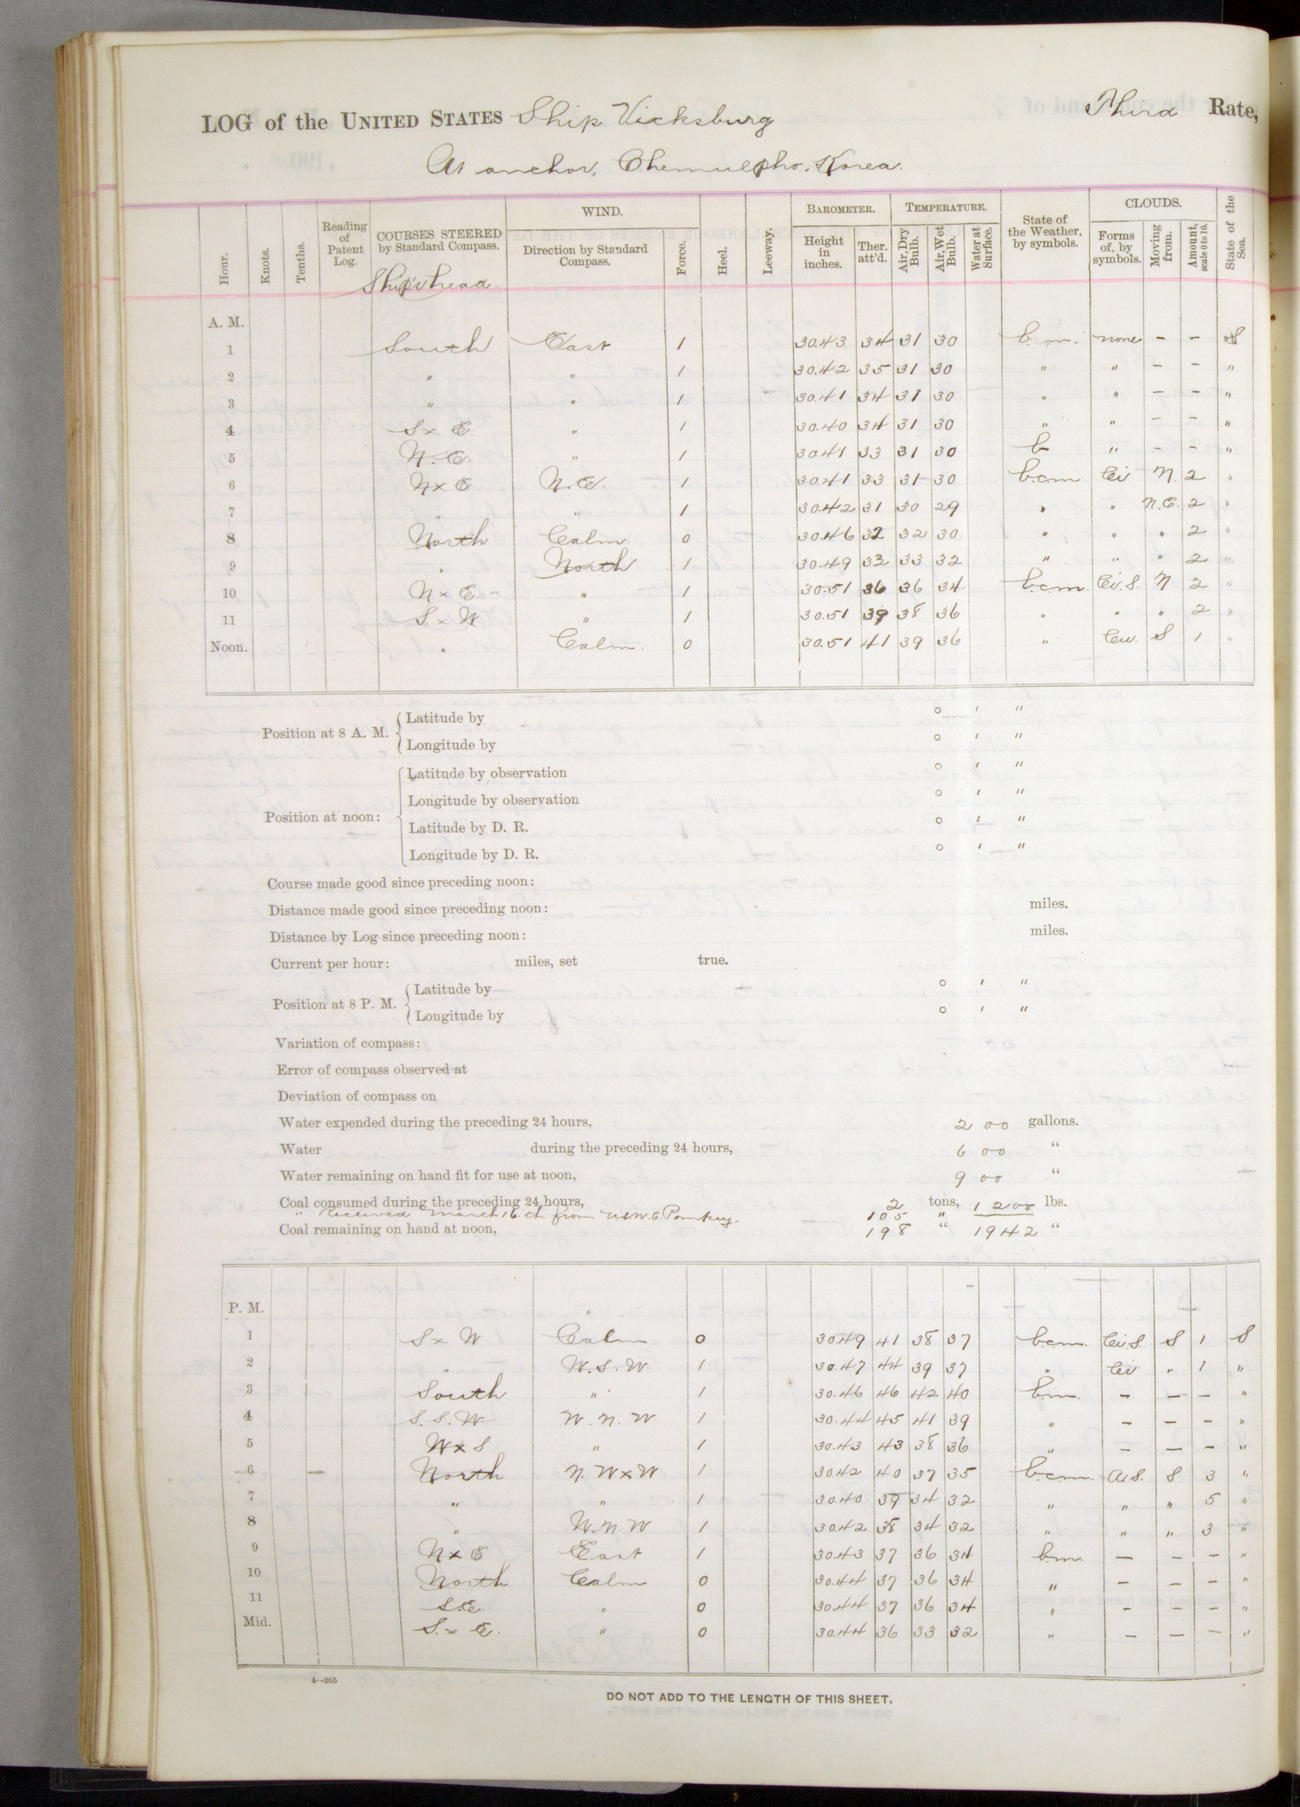 LOG of the UNITED STATES Ship Vicksburg Third Rate,
At anchor, Chemulpho, Korea.
Hour. Knots. Tenths. Reading of Patent Log. COURSES STEERED by Standard Compass. WIND. Direction by Standard Compass. Force. Heel. Leeway. BAROMETER. Height in inches. Ther. att'd. TEMPERATURE. Air, Dry Bulb. Air, Wet Bulb. Water at Surface. State of the Weather, by symbols. CLOUDS. Forms of, by symbols. Moving from. Amount, scale 0 to 10. State of the Sea.
Ship's head
A. M.
1 South East 1 30.43 34 31 30 b.m. none - - S
2 " " 1 30.42 35 31 30 " " - - "
3 " " 1 30.41 34 31 30 " " - - "
4 S x E. " 1 30.40 34 31 30 " " - - "
5 N.E. " 1 30.41 33 31 30 b " - - "
6 N x E N.E. 1 30.41 33 31 30 b.c.m Ci N. 2 "
7 " " 1 30.42 31 30 29 " " N.E. 2 "
8 North Calm 0 30.46 32 32 30 " " " 2 "
9 " North 1 30.49 33 33 32 " " " 2 "
10 N x E. " 1 30.51 36 36 34 b.c.m. Ci.S. N 2 "
11 S x W " 1 30.51 39 38 36 " " " 2 "
Noon. " Calm. 0 30.51 41 39 36 " S 1 "
Position at 8 A. M. Latitude by ° ' "
Longitude by ° ' "
Position at noon: Latitude by observation ° ' "
Longitude by observation ° ' "
Latitude by D. R. ° ' "
Longitude by D. R. ° ' "
Course made good since preceding noon:
Distance made good since preceding noon: miles.
Distance by Log since preceding noon: miles.
Current per hour: miles, set true.
Position at 8 P. M. Latitude by ° ' "
Longitude by ° ' "
Variation of compass:
Error of compass observed at
Deviation of compass on
Water expended during the preceding 24 hours, 200 gallons.
Water during the preceding 24 hours, 600 "
Water remaining on hand fit for use at noon, 900 "
Coal consumed during the preceding 24 hours, 2 tons, 1200 lbs.
" received March 16th from Pompey. 105 "
Coal remaining on hand at noon, 198 " 1942 "
P. M.
1 S x W Calm 0 30.49 41 38 37 b.c.m. Ci.S. S 1 S
2 " W.S.W. 1 30.47 44 39 37 " Ci " 1 "
3 South " 1 30.46 46 42 40 b.m. - - - "
4 S.S.W W.N.W 1 30.44 45 41 39 " - - - "
5 W x S " 1 30.43 43 38 36 " - - - "
6 North N.W x W 1 30.42 40 37 35 b.c.m. S 3 "
7 " " 1 30.40 39 34 32 " " " 5 "
8 " W.N.W 1 30.42 38 34 32 " " " 3 "
9 N x E East 1 30.43 37 36 34 b.m. - - - "
10 North Calm 0 30.44 37 36 34 " - - - "
11 S.E. " 0 30.44 37 36 34 " - - - "
Mid. S. x E. " 0 30.44 36 33 32 " - - - "
4--265
DO NOT ADD TO THE LENGTH OF THIS SHEET.